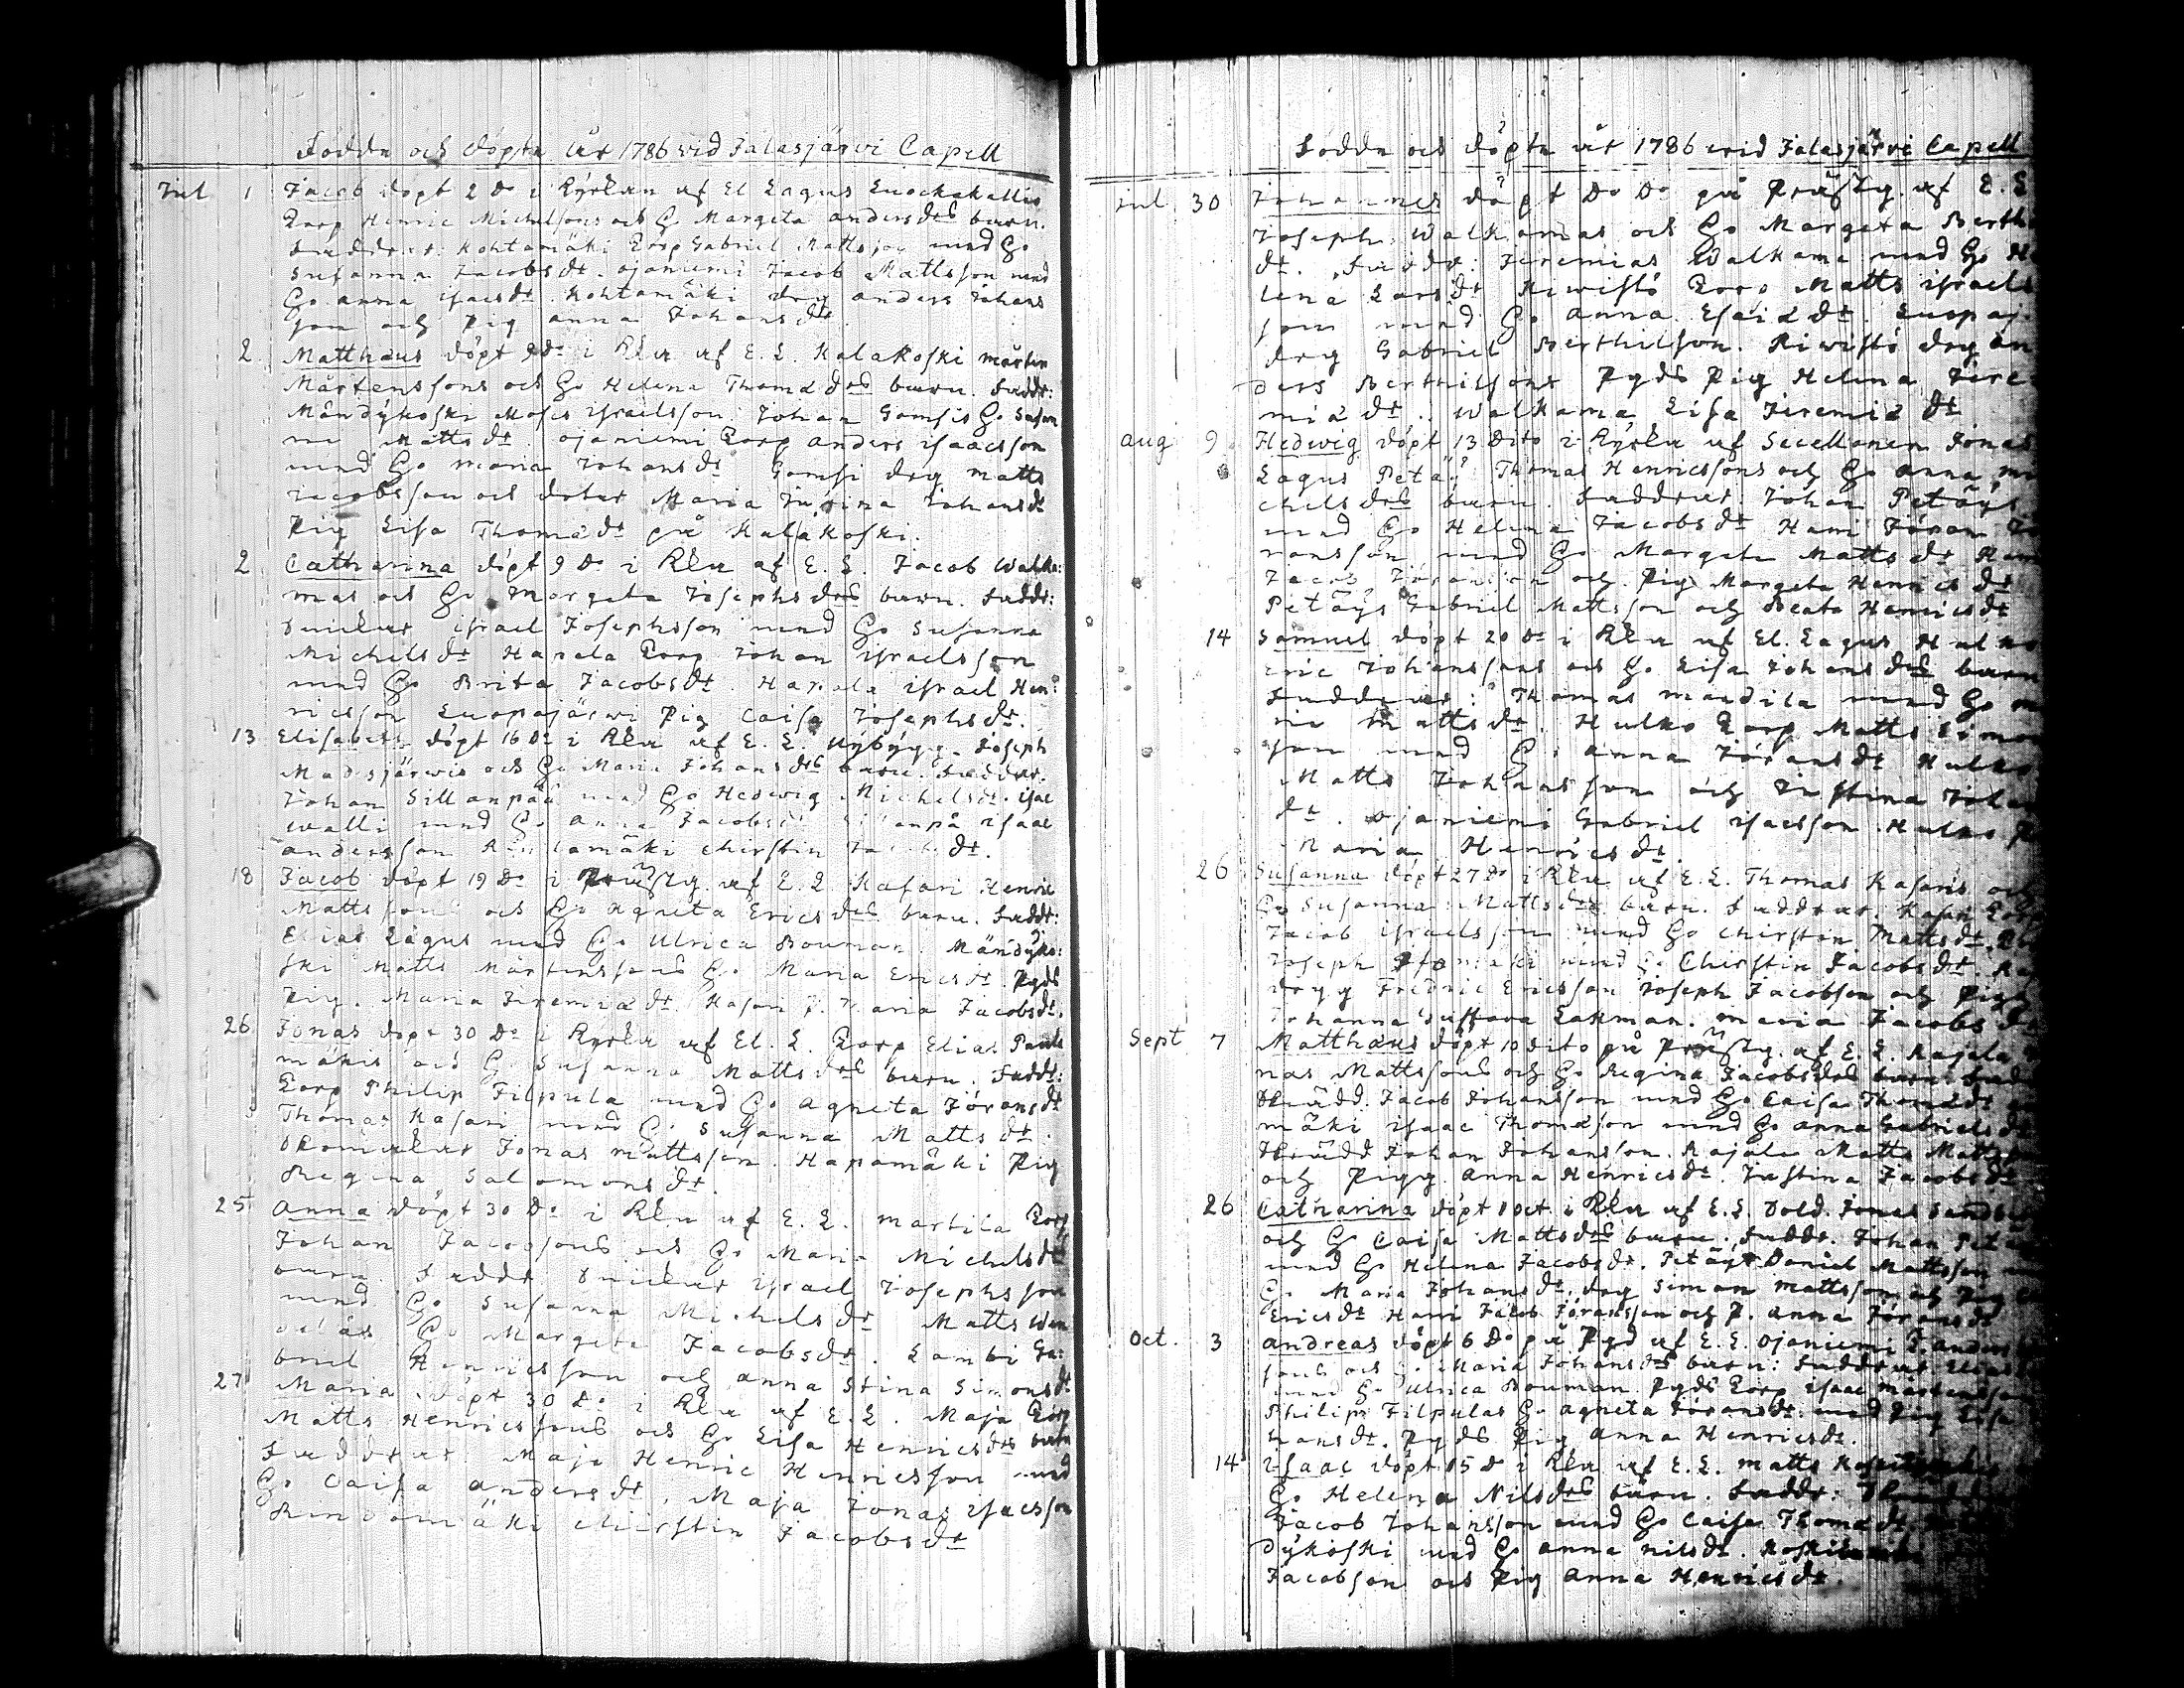 Födde och döpte år 1786 vid Jalasjärvi Capell
Jul 1 Jacob döpt 2 Do i Kyrkan af El Lagus Luockakallio
Torp Henric Michelsons och Ho Margeta Andersdrs barn.
Faddrar: Kohtamäki Torp Gabriel Mattsson med Ho
Susanna Jacobsdr. Ojaniemi Jacob Mattsson med
Ho Anna Isacsdr. Kohtamäki drg Anders Johans
son och Pig Anna Johansdr.
2 Matthæus döpt 9 Do i Kka af E. L. Kalakoski Mårten
Mårtenssons och Ho Helena Thomædrs barn. Faddr:
Mändÿkoski Moses Israelsson. Johan Gomsis Ho Susan
na Mattsdr. Ojaniemi Torp Anders Isaacsson
med Ho Maria Johansdr Gomsi drg Matts
Jacobsson och dotter Maria Johansdr
Pig Lisa Thomædr på Kalakoski.
2 Catharina döpt 9 Do i Kka af E. L. Jacob Walka:
mas och Ho Margeta Josephsdrs barn. Faddr:
Israel Josephsson med Ho Susanna
Michelsdr Hapala Torp Johan Israelsson
med Ho Brita Jacobsdr. Hapala Israel Hen:
ricsson Luopajärwi Pig Caisa Josephsdr.
13 Elisabeth döpt 16 Do i Kka af E. L. Nÿbÿgg. Joseph
Madesjärwis och Ho Maria Johansdrs barn. Faddrar.
Johan Sillanpää med Ho Hedwig Michelsdr. Isac
Walli med Ho Anna Jacobsdr Sillanpä Isaac
Andersson Rindamäki Chirstin Jacobsdr.
18 Jacob döpt 19 Do i Prästg. af E. L. Kasari Henric
Mattssons och Ho Agneta Ericsdrs barn. Faddr:
Elias Lagus med Ho Ulrica Bouman. Mändÿko:
ski Matts Mårtenssons Ho Maria Ericsdr. Pgds
Pig. Maria Jeremiædr. Kasari P. Maria Jacobsdr.
26 Jonas döpt 30 Do i Kyrka af El. L. Torp Elias Panla
mäkis och Ho Susanna Mattsdrs barn. Faddr:
Torp Philip Filpula med Ho Agneta Göransdr
Thomas Kasari med Ho Susanna Mattsdr.
Skomakar Jonas Mattsson. Hapamäki Pig
Regina Salomonsdr.
25 Anna döpt 30 Do i Kka af E. L. Martila Torp
Johan Jacobsons och Ho Maria Michelsdr
barn. Faddr Israel Josephsson
med Ho Susanna Michelsdr Matts Wen
Ho Margeta Jacobsdr. Lambi Ga:
briel Henricsson och Anna Stina Simonsdr
27 Maria döpt 30 Do i Kka af E. L. Maja Torp
Matts Henricssons och Ho Lisa Henricsdrs barn
Faddrar Maja Henric Henricsson med
Ho Caisa Andersdr. Maja Jonas Isacsson
Rindamäki Chirstin Jacobsdr
Födde och döpte år 1786 wid Jalasjärvi Capell
Jul 30 Johannes döpt Do Do på Prästg. af E. L
Joseph Walkamas och Ho Margeta Berth
dr. Faddr: Jeremias Walkama med Ho He
lena Larsdr Kiwistö Torp Matts Israels
son med Ho Anna Esaiædr. Luopaj.
drg Gabriel Berthilson. Kiwistö drg An
ders Berthilsons Pgds Pig Helena Jere
miædr. Walkama Lisa Jeremiædr
Aug 9 Hedwig döpt 13 dito i Kyrka af Sacellanen Jonas
Lagus Petä: Thomas Henricssons och Ho Anna Mi
chelsdrs barn. Faddrar. Johan Petäÿs
med Ho Helena Jacobsdr Hari Jöran Jö
ransson med Ho Margeta Mattsdr Har
Jacob Jöransson och Pig Margeta Henricsdr
Petäÿs Gabriel Mattsson och Beata Henricsdr
14 Samuel döpt 20 Do i Kka af El. Lagus Hulko
Eric Johanssons och Ho Lisa Johansdrs barn
Faddrar: Thomas Mandila med Ho Ma
ria Mattsdr. Hulko Torp Matts Simon
son med Ho Anna Jöransdr Hulko
Matts Johansson och Justina Johan
dr. Ojaniemi Gabriel Isacsson. Hulko P
Maria Henricsdr.
26 Susanna döpt 27 Do i Kka af E. L. Thomas Kasaris och
Ho Susanna Mattsdrs barn. Faddrar. Kasari Torp
Jacob Israelsson med Ho Chirstin Mattsdr.
Joseph med Ho Chirstin Jacobsdr. Ka
drgg Fredric Ericsson Joseph Jacobson och Pigg
Johanna Gustava Eakman. Maria Jacobsdr
Sept 7 Matthæus döpt 10 dito på Prästg. af E. L. Rajala
nas Mattssons och Ho Regina Jacobsdrs barn. Fadd
Skrädd. Jacob Johansson med Ho Caisa Thomædr
mäki Isaac Thomæson med Ho Anna Gabrielsdr
Skrädd Johan Johansson. Rajala Matts Matts
och Pigg. Anna Henricsdr. Justina Jacobsdr
26 Catharina döpt 1 Oct. i Kka af E. L. Sold. Jonas Sandb
och Ho Caisa Mattsdrs barn. Faddr. Johan Petä
med Ho Helena Jacobsdr. Petäÿs Daniel Mattsson
Ho Maria Johansdr. drg Simon Mattsson och Pig
Ericsdr Harri Jacob Jöransson och P. Anna Jöransdr
Oct. 3 Andreas döpt 6 Do på Pgd af E. L. Ojaniemi T. Anders
sons och Ho Maria Johansdrs barn: Faddrar Elias
med Ho Ulrica Bouman Pgds Torp Isaac Mårtensson
Philip Filpulas Ho Agneta Jöransdr. med Pig Lisa
hansdr. Pgds Pig Anna Henricsdr.
14 Isaac döpt 15 Do i Kka af E. L. Matts
Ho Helena Nilsdrs barn. Faddr:
Jacob Johansson med Ho Caisa Thomædr.
dÿkoski med Ho Anna Nilsdr.
Jacobson och Pig Anna Henricsdr.